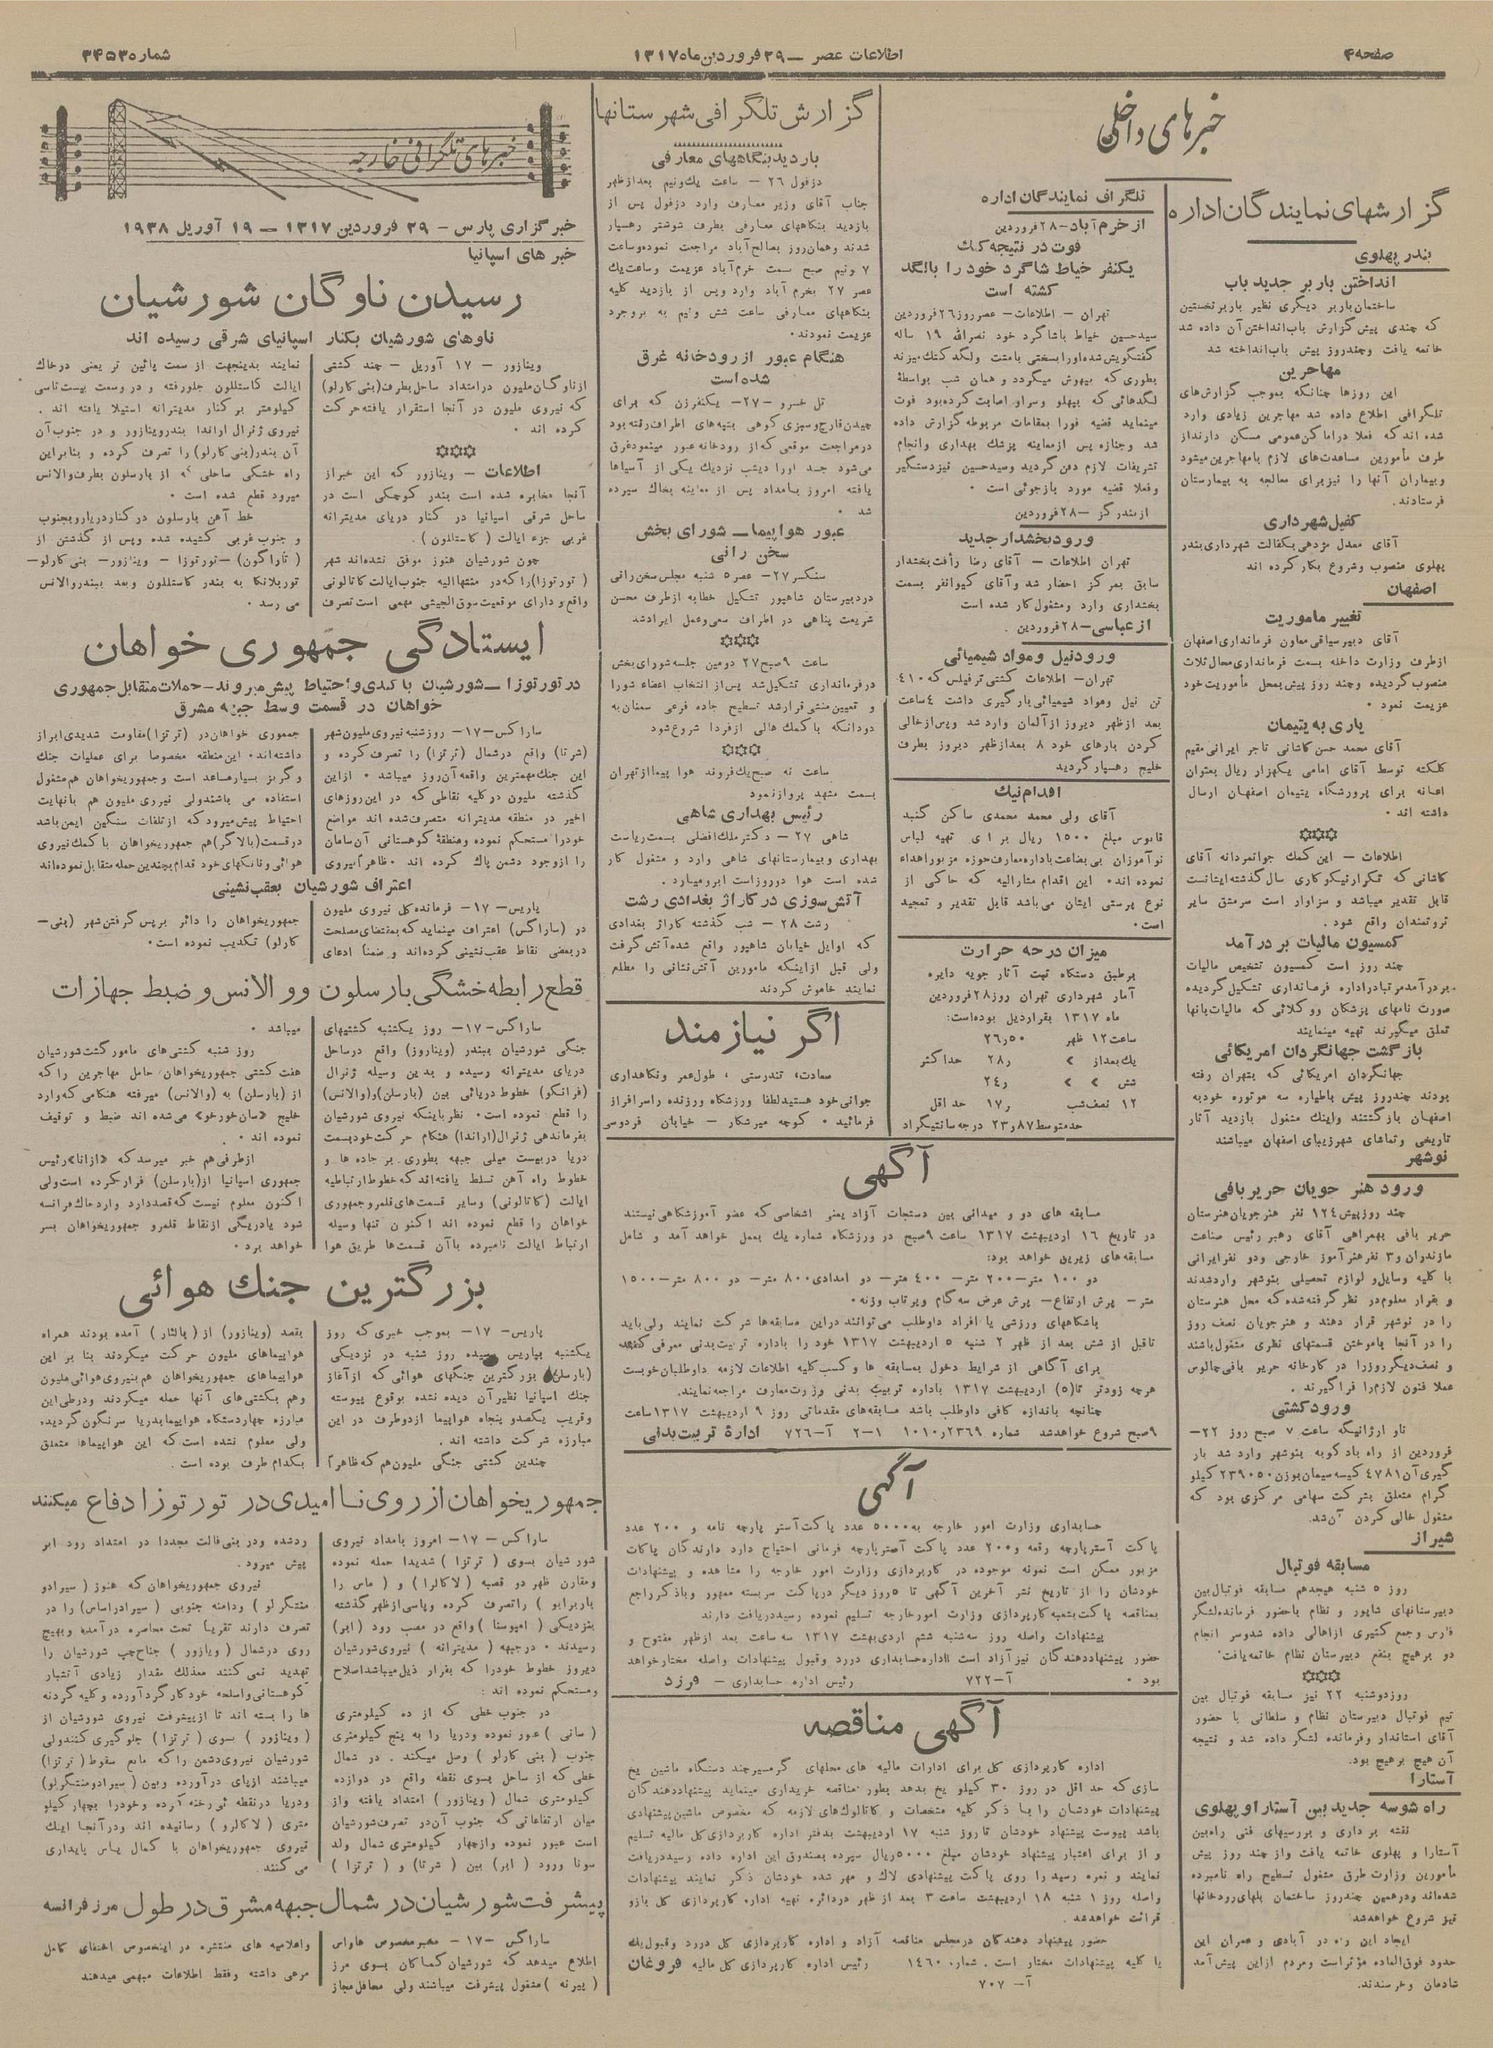 صفحه ۴
اطلاعات عصر — ۲۹ فروردین ماه ۱۳۱۷
شماره ۳۴۵۳
خبرهای داخلی
گزارشهای نمایندگان اداره
بندر پهلوی
انداختن باربر جدید باب
ساختمان باربر دیگری نظیر باربر نخستین
که چندی پیش گزارش باب انداختن آن داده شد
خاتمه یافت و چند روز پیش باب انداخته شد
مهاجرین
این روزها چنانکه بموجب گزارش‌های
تلگرافی اطلاع داده شد مهاجرین زیادی وارد
شده اند که فعلا در اماکن عمومی مسکن دارند از
طرف مأمورین مساعدت‌های لازم با مهاجرین میشود
و بیماران آنها را نیز برای معالجه به بیمارستان
فرستادند.
کفیل شهرداری
آقای معدل مژدهی بکفالت شهرداری بندر
پهلوی منصوب و شروع بکار کرده اند
اصفهان
تغییر ماموریت
آقای دبیر سیاقی معاون فرمانداری اصفهان
از طرف وزارت داخله بسمت فرمانداری محال ثلاث
منصوب گردیده و چند روز پیش بمحل مأموریت خود
عزیمت نمود ۰
یاری به یتیمان
آقای محمد حسن کاشانی تاجر ایرانی مقیم
کلکته توسط آقای امامی یکهزار ریال بعنوان
اعانه برای پرورشگاه یتیمان اصفهان ارسال
داشته اند ۰
اطلاعات — این کمک جوانمردانه آقای
کاشانی که تکرار نیکوکاری سال گذشته ایشانست
قابل تقدیر میباشد و سزاوار است سرمشق سایر
ثروتمندان واقع شود .
کمسیون مالیات بر درآمد
چند روز است کمسیون تشخیص مالیات
بر درآمد مرتبا در اداره فرمانداری تشکیل گردیده
صورت نامهای پزشکان و وکلائی که مالیات بانها
تعلق میگیرند تهیه مینمایند
بازگشت جهانگردان امریکائی
جهانگردان امریکائی که بتهران رفته
بودند چند روز پیش با طیاره سه موتوره خود به
اصفهان بازگشتند و اینک مشغول بازدید آثار
تاریخی و تماشای شهر زیبای اصفهان میباشند
نوشهر
ورود هنرجویان حریر بافی
چند روز پیش ۱۲۴ نفر هنرجویان هنرستان
حریر بافی بهمراهی آقای رهبر رئیس صناعت
مازندران و ۳ نفر هنرآموز خارجی و دو نفر ایرانی
با کلیه وسایل و لوازم تحصیلی بنوشهر وارد شدند
و بقرار معلوم در نظر گرفته شده که محل هنرستان
را در نوشهر قرار دهند و هنرجویان نصف روز
را در آنجا بآموختن قسمتهای نظری مشغول باشند
و نصف دیگر روز را در کارخانه حریر بافی چالوس
عملا فنون لازم را فرا گیرند .
ورود کشتی
ناو ارژانیکه ساعت ۷ صبح روز ۲۲-
فروردین از راه بادکوبه بنوشهر وارد شد بار
گیری آن ۴۷۸۱ کیسه سیمان بوزن ۲۳۹۰۵۰ کیلو
گرام متعلق بشرکت سهامی مرکزی بود که
مشغول خالی کردن آن شد.
شیراز
مسابقه فوتبال
روز ۵ شنبه هیجدهم مسابقه فوتبال بین
دبیرستانهای شاپور و نظام با حضور فرمانده لشگر
فارس و جمع کثیری از اهالی داده شد و سر انجام
دو بر هیچ بنفع دبیرستان نظام خاتمه یافت.
روز دوشنبه ۲۲ نیز مسابقه فوتبال بین
تیم فوتبال دبیرستان نظام و سلطانی با حضور
آقای استاندار و فرمانده لشگر داده شد و نتیجه
آن هیچ بر هیچ بود.
آستارا
راه شوسه جدید بین آستارا و پهلوی
نقشه برداری و بررسیهای فنی راه بین
آستارا و پهلوی خاتمه یافت و از چند روز پیش
مأمورین وزارت طرق مشغول تسطیح راه نامبرده
شده‌اند و در همین چند روز ساختمان پلهای رودخانها
نیز شروع خواهد شد
ایجاد این راه در آبادی و عمران این
حدود فوق‌العاده مؤثر است و مردم از این پیش آمد
شادمان و خرسندند.
تلگراف نمایندگان اداره
از خرم آباد — ۲۸ فروردین
فوت در نتیجه کتک
یکنفر خیاط شاگرد خود را با لگد
کشته است
تهران — اطلاعات — عصر روز ۲۶ فروردین
سید حسین خیاط با شاگرد خود نصرالله ۱۹ ساله
گفتگویش شده او را بسختی با مشت و لگد کتک میزند
بطوری که بیهوش میگردد و همان شب بواسطهٔ
لگدهائی که بپهلو و سر او اصابت کرده بود فوت
مینماید قضیه فورا بمقامات مربوطه گزارش داده
شد و جنازه پس از معاینه پزشک بهداری و انجام
تشریفات لازم دفن گردید و سید حسین نیز دستگیر
و فعلا قضیه مورد بازجوئی است ۰
از بندر گز — ۲۸ فروردین
ورود بخشدار جدید
تهران اطلاعات — آقای رضا رأفت بخشدار
سابق بمرکز احضار شد و آقای کیوانفر بسمت
بخشداری وارد و مشغول کار شده است
از عباسی — ۲۸ فروردین .
ورود نیل و مواد شیمیائی
تهران — اطلاعات کشتی ترفیلس که ۴۱۰
تن نیل و مواد شیمیائی بارگیری داشت ۴ ساعت
بعد از ظهر دیروز از آلمان وارد شد و پس از خالی
کردن بارهای خود ۸ بعد از ظهر دیروز بطرف
خلیج رهسپار گردید
اقدام نیک
آقای ولی محمد محمدی ساکن گنبد
قابوس مبلغ ۱۵۰۰ ریال برای تهیه لباس
نوآموزان بی بضاعت باداره معارف حوزه مزبور اهداء
نموده اند ۰ این اقدام مشارالیه که حاکی از
نوع پرستی ایشان می‌باشد قابل تقدیر و تمجید
است ۰
میزان درجه حرارت
برطبق دستگاه ثبت آثار جویه دایره
آمار شهرداری تهران روز ۲۸ فروردین
ماه ۱۳۱۷ بقرار ذیل بوده است:
ساعت ۱۲ ظهر ۲۶٫۵۰
یک بعداز » ۲۸٫ حداکثر
شش » » ۲۴٫
۱۲ نصف شب ۱۷٫ حد اقل
حد متوسط ۲۳٫۸۷ درجه سانتیگراد
گزارش تلگرافی شهرستانها
بازدید بنگاههای معارفی
دزفول ۲۶ — ساعت یک و نیم بعد از ظهر
جناب آقای وزیر معارف وارد دزفول پس از
بازدید بنگاههای معارفی بطرف شوشتر رهسپار
شدند و همان روز بصالح آباد مراجعت نموده و ساعت
۷ و نیم صبح سمت خرم آباد عزیمت و ساعت یک
عصر ۲۷ بخرم آباد وارد و پس از بازدید کلیه
بنگاههای معارفی ساعت شش و نیم به بروجرد
عزیمت نمودند ۰
هنگام عبور از رودخانه غرق
شده است
تل خسرو — ۲۷ — یکنفر زن که برای
چیدن قارچ و سبزی کوهی بتپه‌های اطراف رفته بود
در مراجعت موقعی که از رودخانه عبور مینمود غرق
می‌شود جسد او را دیشب نزدیک یکی از آسیاها
یافته امروز بامداد پس از معاینه بخاک سپرده
شد ۰
عبور هواپیما — شورای بخش
سخن رانی
سنگسر ۲۷ — عصر ۵ شنبه مجلس سخن رانی
در دبیرستان شاهپور تشکیل خطابه از طرف محسن
شریعت پناهی در اطراف سعی و عمل ایراد شد
ساعت ۹ صبح ۲۷ دومین جلسه شورای بخش
در فرمانداری تشکیل شد پس از انتخاب اعضاء شورا
و تعیین منشی قرار شد تسطیح جاده فرعی سمنان به
دودانگه با کمک هالی از فردا شروع شود
ساعت نه صبح یک فروند هوا پیما از تهران
بسمت مشهد پرواز نمود
رئیس بهداری شاهی
شاهی ۲۷ — دکتر ملک افضلی بسمت ریاست
بهداری و بیمارستانهای شاهی وارد و مشغول کار
شده است هوا دو روز است ابر و میبارد .
آتش سوزی در کاراژ بغدادی رشت
رشت ۲۸ — شب گذشته کاراژ بغدادی
که اوایل خیابان شاهپور واقع شده آتش گرفت
ولی قبل از اینکه مامورین آتش نشانی را مطلع
نمایند خاموش کردند
اگر نیازمند
سعادت، تندرستی ، طول عمر و نگاهداری
جوانی خود هستید لطفا ورزشگاه ورزنده را سرافراز
فرمائید ۰ کوچه میرشکار — خیابان فردوسی
آگهی
مسابقه های دو و میدانی بین دستجات آزاد یعنی اشخاصی که عضو آموزشگاهی نیستند
در تاریخ ۱۶ اردیبهشت ۱۳۱۷ ساعت ۹ صبح در ورزشگاه شماره یک بعمل خواهد آمد و شامل
مسابقه‌های زیرین خواهد بود:
دو ۱۰۰ متر — ۲۰۰ متر — ۴۰۰ متر — دو امدادی ۸۰۰ متر — دو ۸۰۰ متر — ۱۵۰۰
متر — پرش ارتفاع — پرش عرض سه گام و پرتاب وزنه ۰
باشگاههای ورزشی یا افراد داوطلب می‌توانند در این مسابقه‌ها شرکت نمایند ولی باید
تا قبل از شش بعد از ظهر ۲ شنبه ۵ اردیبهشت ۱۳۱۷ خود را باداره تربیت بدنی معرفی کنند
برای آگاهی از شرایط دخول بمسابقه ها و کسب کلیه اطلاعات لازمه داوطلبان خوبست
هرچه زودتر تا (۵) اردیبهشت ۱۳۱۷ باداره تربیت بدنی وزارت معارف مراجعه نمایند.
چنانچه باندازه کافی داوطلب باشد مسابقه‌های مقدماتی روز ۹ اردیبهشت ۱۳۱۷ ساعت
۹ صبح شروع خواهد شد شماره ۱۰۱۰٫۲۳۶۹ ۱-۲ آ-۷۲۶ ادارهٔ تربیت بدنی
آگهی
حسابداری وزارت امور خارجه به ۵۰۰۰ عدد پاکت آستر پارچه نامه و ۲۰۰ عدد
پاکت آستر پارچه رقعه و ۲۰۰ عدد پاکت آستر پارچه فرمانی احتیاج دارد دارندگان پاکات
مزبور ممکن است نمونه موجوده در کارپردازی وزارت امور خارجه را مشاهده و پیشنهادات
خودشان را از تاریخ نشر آخرین آگهی تا ۵ روز دیگر در پاکت سربسته ممهور و با ذکر راجع
بمناقصه پاکت بشعبه کارپردازی وزارت امور خارجه تسلیم نموده رسید دریافت دارند
پیشنهادات واصله روز سه‌شنبه ششم اردی‌بهشت ۱۳۱۷ سه ساعت بعد از ظهر مفتوح و
حضور پیشنهاد دهندگان نیز آزاد است اداره حسابداری در رد و قبول پیشنهادات واصله مختار خواهد
بود ۰ آ-۷۲۲ رئیس اداره حسابداری — فرزد
آگهی مناقصه
اداره کارپردازی کل برای ادارات مالیه های محلهای گرمسیر چند دستگاه ماشین یخ
سازی که حد اقل در روز ۳۰ کیلو یخ بدهد بطور مناقصه خریداری مینماید پیشنهاد دهندگان
پیشنهادات خودشان را با ذکر کلیه مشخصات و کاتالوک‌های لازمه که مخصوص ماشین پیشنهادی
باشد پیوست پیشنهاد خودشان تا روز شنبه ۱۷ اردیبهشت بدفتر اداره کارپردازی کل مالیه تسلیم
و از برای اعتبار پیشنهاد خودشان مبلغ ۵۰۰۰ ریال سپرده بصندوق این اداره داده رسید دریافت
نمایند و نمره رسید را روی پاکت پیشنهادی لاک و مهر شده خودشان ذکر نمایند پیشنهادات
واصله روز ۱ شنبه ۱۸ اردیبهشت ساعت ۳ بعد از ظهر در دائره تهیه اداره کارپردازی کل باز و
قرائت خواهد شد.
حضور پیشنهاد دهندگان در مجلس مناقصه آزاد و اداره کارپردازی کل در رد و قبول یک
یا کلیه پیشنهادات مختار است . شماره ۱۴۶۰ رئیس اداره کارپردازی کل مالیه فروغان
آ-۷۰۷
خبرهای تلگرافی خارجه
خبرگزاری پارس - ۲۹ فروردین ۱۳۱۷ — ۱۹ آوریل ۱۹۳۸
خبر های اسپانیا
رسیدن ناوگان شورشیان
ناوهای شورشیان بکنار اسپانیای شرقی رسیده اند
وینازور — ۱۷ آوریل — چند کشتی
از ناوگان ملیون در امتداد ساحل بطرف (بنی کارلو)
که نیروی ملیون در آنجا استقرار یافته حرکت
کرده اند .
اطلاعات — وینازور که این خبر از
آنجا مخابره شده است بندر کوچکی است در
ساحل شرقی اسپانیا در کنار دریای مدیترانه
غربی جزء ایالت ( کاستلون ) .
چون شورشیان هنوز موفق نشده‌اند شهر
( تورتوزا ) را که در منتها الیه جنوب ایالت کاتالونی
واقع و دارای موقعیت سوق الجیشی مهمی است تصرف
نمایند بدینجهت از سمت پائین تر یعنی در خاک
ایالت کاستللون جلو رفته و در وسعت بیست تا سی
کیلومتر بر کنار مدیترانه استیلا یافته اند .
نیروی ژنرال اراندا بندر وینازور و در جنوب آن
آن بندر (بنی کارلو) را تصرف کرده و بنابراین
راه خشکی ساحلی که از بارسلون بطرف والانس
میرود قطع شده است ۰
خط آهن بارسلون در کنار دریا رو بجنوب
و جنوب غربی کشیده شده و پس از گذشتن از
(تاراگون) — تورتوزا — وینازور — بنی کارلو —
توربلانکا به بندر کاستللون و بعد ببندر والانس
می رسد ۰
ایستادگی جمهوری خواهان
در تورتوزا — شورشیان با کندی و احتیاط پیش میروند — حملات متقابل جمهوری
خواهان در قسمت وسط جبهه مشرق
ساراگس — ۱۷ — روز شنبه نیروی ملیون شهر
(شرتا) واقع در شمال (ترتزا) را تصرف کرده و
این جنگ مهمترین واقعه آن روز میباشد ۰ از این
گذشته ملیون در کلیه نقاطی که در این روزهای
اخیر در منطقه مدیترانه متصرف شده اند مواضع
خود را مستحکم نموده و منطقهٔ کوهستانی آن سامان
را از وجود دشمن پاک کرده اند ۰ ظاهراً نیروی
جمهوری خواهان در (ترتزا) مقاومت شدیدی ابراز
داشته‌اند ۰ این منطقه مخصوصا برای عملیات جنگ
و گریز بسیار مساعد است و جمهوریخواهان هم مشغول
استفاده می باشند ولی نیروی ملیون هم با نهایت
احتیاط پیش میرود که از تلفات سنگین ایمن باشد
در قسمت (بالاگر) هم جمهوریخواهان با کمک نیروی
هوائی و تانکهای خود قدام بچندین حمله متقابل نموده‌اند
اعتراف شورشیان بعقب نشینی
پاریس — ۱۷ — فرمانده کل نیروی ملیون
در (ساراگس) اعتراف مینماید که بمقتضای مصلحت
در بعضی نقاط عقب نشینی کرده‌اند و ضمناً ادعای
جمهوریخواهان را دائر بر پس گرفتن شهر (بنی —
کارلو) تکذیب نموده است ۰
قطع رابطه خشگی بارسلون و والانس و ضبط جهازات
ساراگس — ۱۷ — روز یکشنبه کشتیهای
جنگی شورشیان ببندر (ویناروز) واقع در ساحل
دریای مدیترانه رسیده و بدین وسیله ژنرال
(فرانکو) خطوط دریائی بین (بارسلن) و (والانس)
را قطع نموده است ۰ نظر باینکه نیروی شورشیان
بفرماندهی ژنرال (اراندا) هنگام حرکت خود بسمت
دریا در بیست میلی جبهه بطوری بر جاده ها و
خطوط راه آهن تسلط یافته‌اند که خطوط ارتباطیه
ایالت (کاتالونی) و سایر قسمت‌های قلمرو جمهوری
خواهان را قطع نموده اند اکنون تنها وسیله
ارتباط ایالت نامبرده با آن قسمت‌ها طریق هوا
میباشد ۰
روز شنبه کشتی‌های مامور گشت شورشیان
هفت کشتی جمهوریخواهان حامل مهاجرین را که
از (بارسلن) به (والانس) میرفته هنگامی که وارد
خلیج «سان خورخو» می‌شده اند ضبط و توقیف
نموده اند ۰
از طرفی هم خبر میرسد که «ازانا» رئیس
جمهوری اسپانیا از (بارسلن) فرار کرده است ولی
اکنون معلوم نیست که قصد دارد وارد خاک فرانسه
شود یا در یکی از نقاط قلمرو جمهوریخواهان بسر
خواهد برد ۰
بزرگترین جنگ هوائی
پاریس — ۱۷ — بموجب خبری که روز
یکشنبه بپاریس رسیده روز شنبه در نزدیکی
(بارسلن) بزرگترین جنگهای هوائی که از آغاز
جنگ اسپانیا نظیر آن دیده نشده بوقوع پیوسته
و قریب یکصد و پنجاه هواپیما از دو طرف در این
مبارزه شرکت داشته اند .
چندین کشتی جنگی ملیون هم که ظاهراً
بقصد (وینازور) از (پالنار) آمده بودند همراه
هواپیماهای ملیون حرکت میکردند بنا بر این
هواپیماهای جمهوریخواهان هم بنیروی هوائی ملیون
و هم بکشتی‌های آنها حمله میکردند و در طی این
مبارزه چهار دستگاه هواپیما بدریا سرنگون گردیده
ولی معلوم نشده است که این هواپیماها متعلق
بکدام طرف بوده است .
جمهوریخواهان از روی نا امیدی در تورتوزا دفاع میکنند
ساراگس — ۱۷ — امروز بامداد نیروی
شورشیان بسوی ( ترتزا ) شدیدا حمله نموده
و مقارن ظهر دو قصبه ( لاکالرا ) و ( ماس را
باربرابو ) را تصرف کرده و پاسی از ظهر گذشته
بنزدیکی ( امپوستا ) واقع در مصب رود (ابر)
رسیدند ۰ در جبهه ( مدیترانه ) نیروی شورشیان
دیروز خطوط خود را که بقرار ذیل میباشد اصلاح
و مستحکم نموده اند :
در جنوب خطی که از ده کیلومتری
( سانی ) عبور نموده و دریا را به پنج کیلومتری
جنوب ( بنی کارلو ) وصل میکند . در شمال
خطی که از ساحل بسوی نقطه واقع در دوازده
کیلومتری شمال ( وینازور ) امتداد یافته و از
میان ارتفاعاتی که جنوب آن در تصرف شورشیان
است عبور نموده و از چهار کیلومتری شمال ولد
سونا ورود ( ابر ) بین ( شرتا ) و ( ترتزا )
رد شده و در بنی فالت مجددا در امتداد رود ابر
پیش میرود .
نیروی جمهوریخواهان که هنوز ( سیرا دو
منتگرلو ) و دامنه جنوبی ( سیرا دراساس ) را در
تصرف دارند تقریباً تحت محاصره درآمده و بهیچ
روی در شمال ( وینازور ) جناح چپ شورشیان را
تهدید نمی کنند معذلک مقدار زیادی آتشبار
کوهستانی و اسلحه خودکار گرد آورده و کلیه گردنه
ها را بسته اند تا از پیشرفت نیروی شورشیان از
( وینازور ) بسوی ( ترتزا ) جلوگیری کنند ولی
شورشیان نیروی دشمن را که مانع سقوط (ترتزا)
میباشند از پای درآورده و بین ( سیرا دو منتگرلو)
و دریا در نقطه ئی رخنه کرده و خود را بچهار کیلو
متری ( لاکالرو ) رسانیده اند و در آنجا اینک
نیروی جمهوریخواهان با کمال یأس پایداری
می کنند .
پیشرفت شورشیان در شمال جبهه مشرق در طول مرز فرانسه
ساراگس — ۱۷ — مخبر مخصوص هاواس
اطلاع میدهد که شورشیان کماکان بسوی مرز
( پیرنه ) مشغول پیشرفت میباشند ولی محافل مجاز
و اعلامیه های منتشره در اینخصوص اختفای کامل
مرعی داشته و فقط اطلاعات مبهمی میدهند